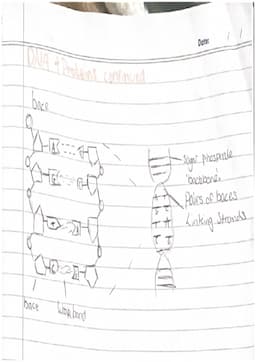 Date: / /
DNA + Proteins continued
base
sugar phosphate
'backbone'
Pairs of bases
Linking Strands
base